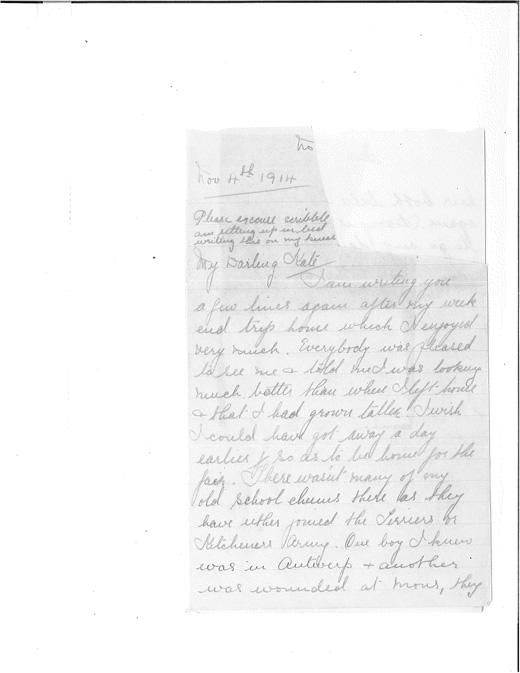 No
Nov 4th 1914
Please excuse scribble
am sitting up in bed
writing this on my knees
My Darling Kate
I am writing you
a few lines again after my week
end trip home which I enjoyed
very much. Everybody was pleased
to see me & told me I was looking
much better than when I left home
& that I had grown taller I wish
I could have got away a day
earlier so as to be home for the
fair. There wasn't many of my
old school chums there as they
have either joined the Terriers or
Kitcheners Army. One boy I knew
was in Antwerp & another
was wounded at Mons, they